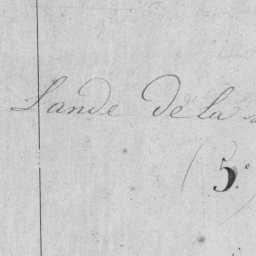 Lande de la
(5.e